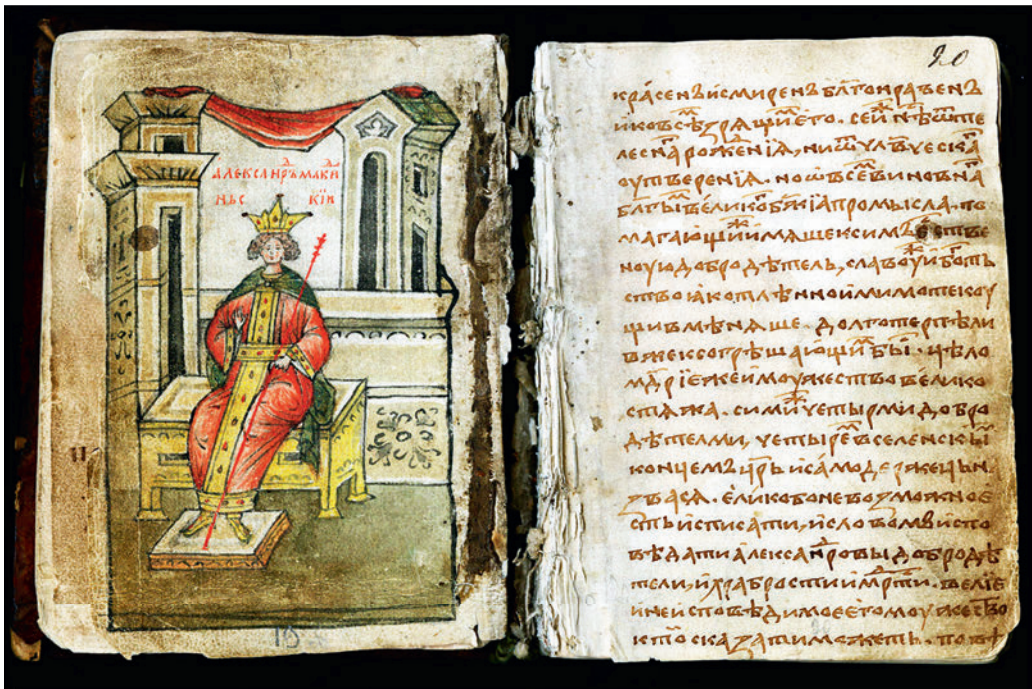 АЛЕКСАНРЪ МАКИ
НЬС КЇИ
20
красенъ и смиренъ бл҃гонравенъ
и ко всѣ зрящїи его. сеи нѣ ѿ те
леснА роженїА, ни ѿ улв҃уеска
оутверенїА. но ѿ всѣ виновнА
великоБж҃їА промысла. по
магающїи имяше к симъ естьве
ноую добродѣтель, славоу и бг҃отъ
ство яко тлѣнно и мимотекоу
щи вмѣняше. долготерпѣли
въ же к согрѣшающїи бы. цѣло
мдрїе же и моужество велико
стяжа. сими уетырми добро
дѣтелми, уетыре вселенскы
концемъ цр҃ь и самодержець на
звася. елико бо невозможное
сть исписати, и словомъ испо
вѣдати алексанровы добродѣ
тели, и храбрости и мрти. велїе
и неисповѣдимое его моужество
кто сказати можеть. по вѣ